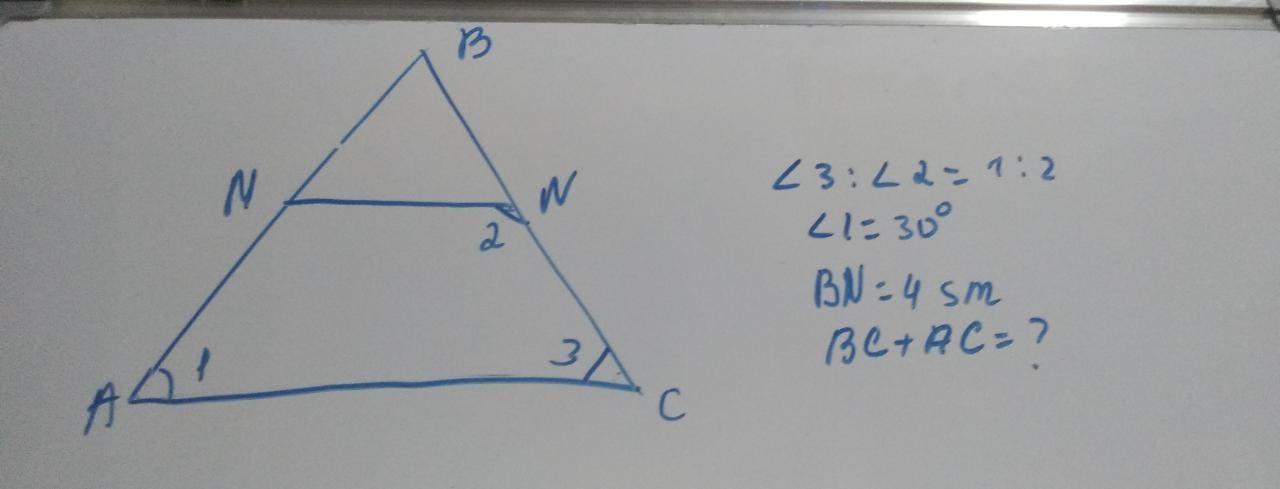 B
N
N
2
1
3
A
C
∠3:∠2=1:2
∠1=30°
BN=4 sm
BC+AC=?